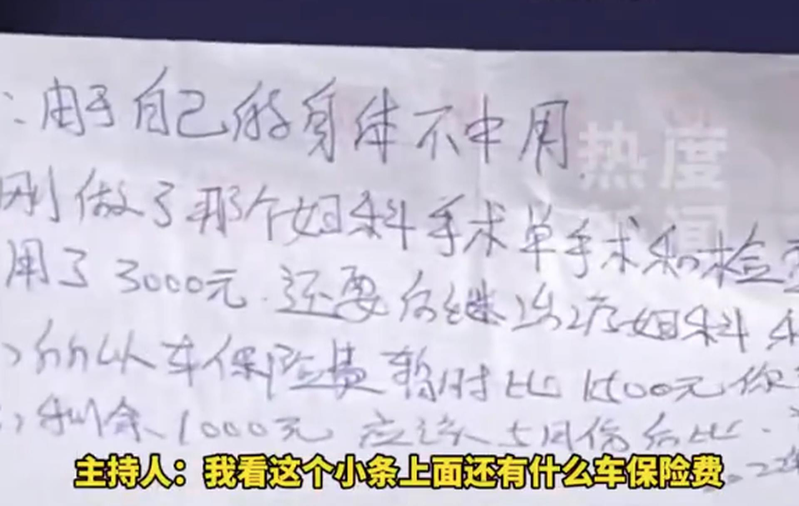 ：由于自己的身体不中用
刚做了那个妇科手术单手术和检查
用了3000元.还要后继治疗妇科
所以车保险费暂时比1500元你
剩余1000元应该
热度
新闻
主持人：我看这个小条上面还有什么车保险费